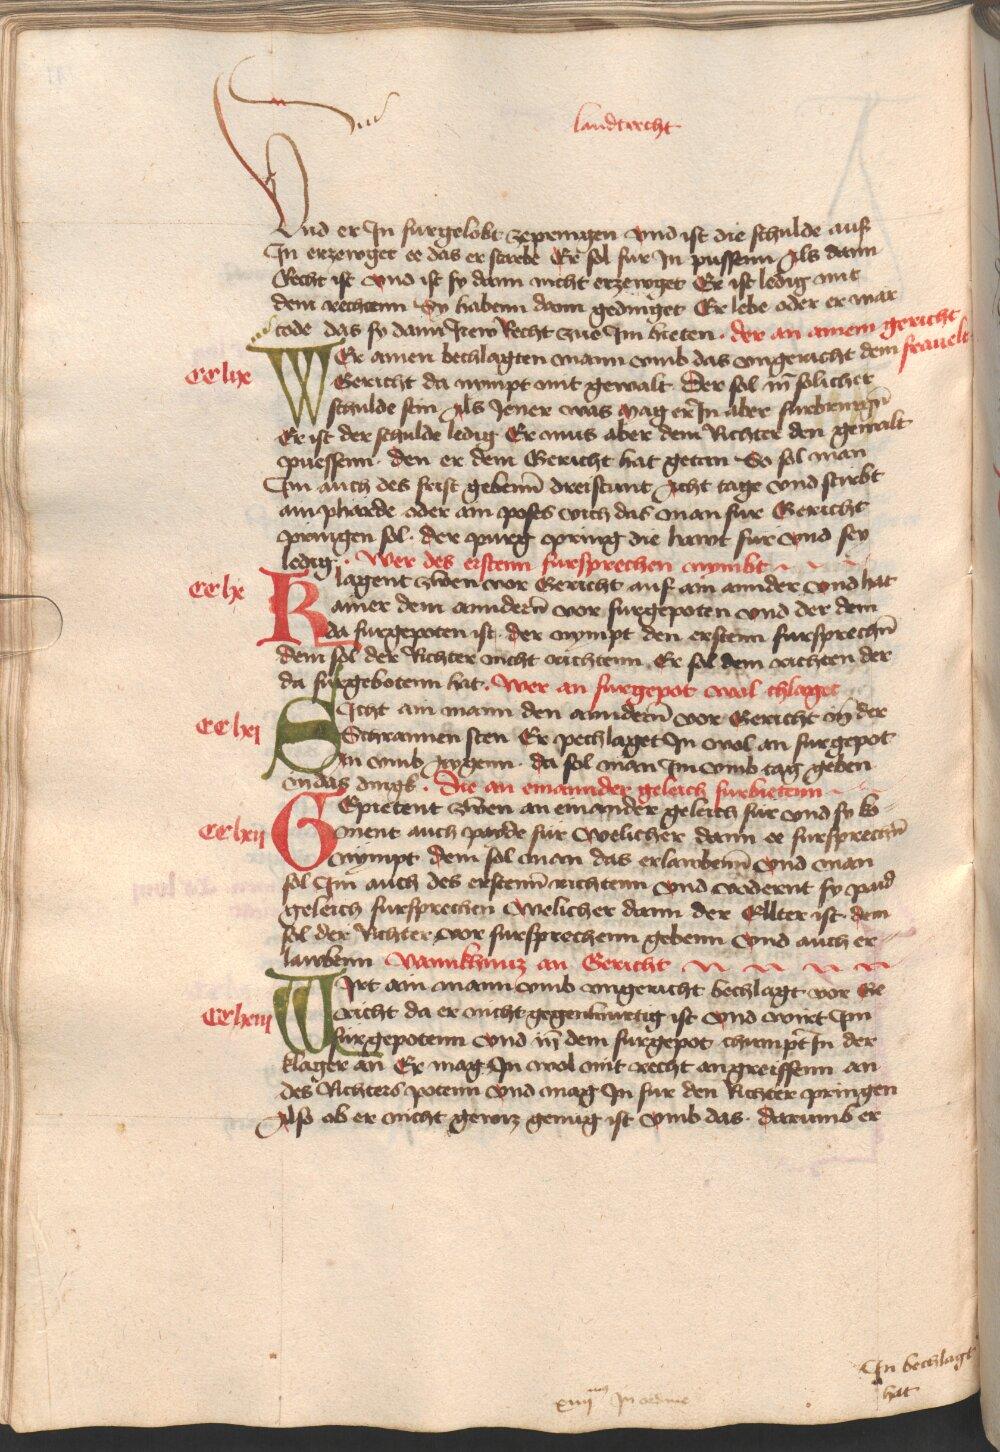 landtrecht
Und er In furgelobt zepringen vnd ist die schulde auff
In erzewget ee das er sterbe Er sol fur In pussenn Als dann
Recht ist vnd ist sy dann nicht erzewget Er ist ledig mit
dem rechtenn Sy habenn dann gedinget Er lebe oder er war
tode das sy dann Irem Recht zue Im bieten . der an ainem gericht
frauelt
CClix
WEr ainen bechlagten mann vmb das vngericht dem
Gericht da nympt mit gewalt Der sol In solicher
schulde sein Als Jener was mag er In aber furbringen̄
Er ist der schulde ledig Er mus aber dem Richter den gewalt
puessenn . den er dem Gericht hat getan So sol man
Im auch des frist gebenn̄ dreistunt Acht tage vnd stirbt
ain pharde oder ain poses vich das man fur Gericht
pringen sol . der purg pring die hawt fur vnd sey
ledig . Wer des erstenn fursprechen nymbt
CClx
Klagent zwen vor Gericht auf ain annder vnd hat
ainer dem anndern̄ vor furgepoten vnd der dem
da furgepoten ist . der nympt den erstenn fursprechn̄
dem sol der Richter nicht richtenn Er sol dem richten der
da furgebotenn hat . Wer an furgepot wol chlaget
CClxj
SIcht ain mann den anndern̄ vor Gericht In der
Schrannen sten Er pechlaget In wol an furgepot
An vmb Aygenn . da sol man Im vmb tag geben
In das dingk . Die an einannder geleich furbietenn
CClxij
GEpietent zwen an einander geleich fur vnd sy ko=
ment auch paide fur Welicher dann ee fursprechn̄
nympt dem sol man das erlawbenn̄ vnd man
sol Im auch des erstenn̄ richtenn vnd vodernt sy paid
geleich fursprechen Welicher dann der Ellter ist . dem
sol der Richter vor fursprechenn gebenn vnd auch er=
lawbenn Vannkhnuz an Gericht
CClxiij
WIrt ain mann vmb vngericht bechlagt vor Ge
richt da er nicht gegenburtig ist vnd wirt Im
furgepotenn vnd In̄ dem furgepot chumpt In der
klager an Er mag In wol mit recht angreiffenn an
des Richters potenn vnd mag In fur den Richter pringen
Also ob er nicht gewiz genug ist vmb das . darumb er
In bechlagt
hat